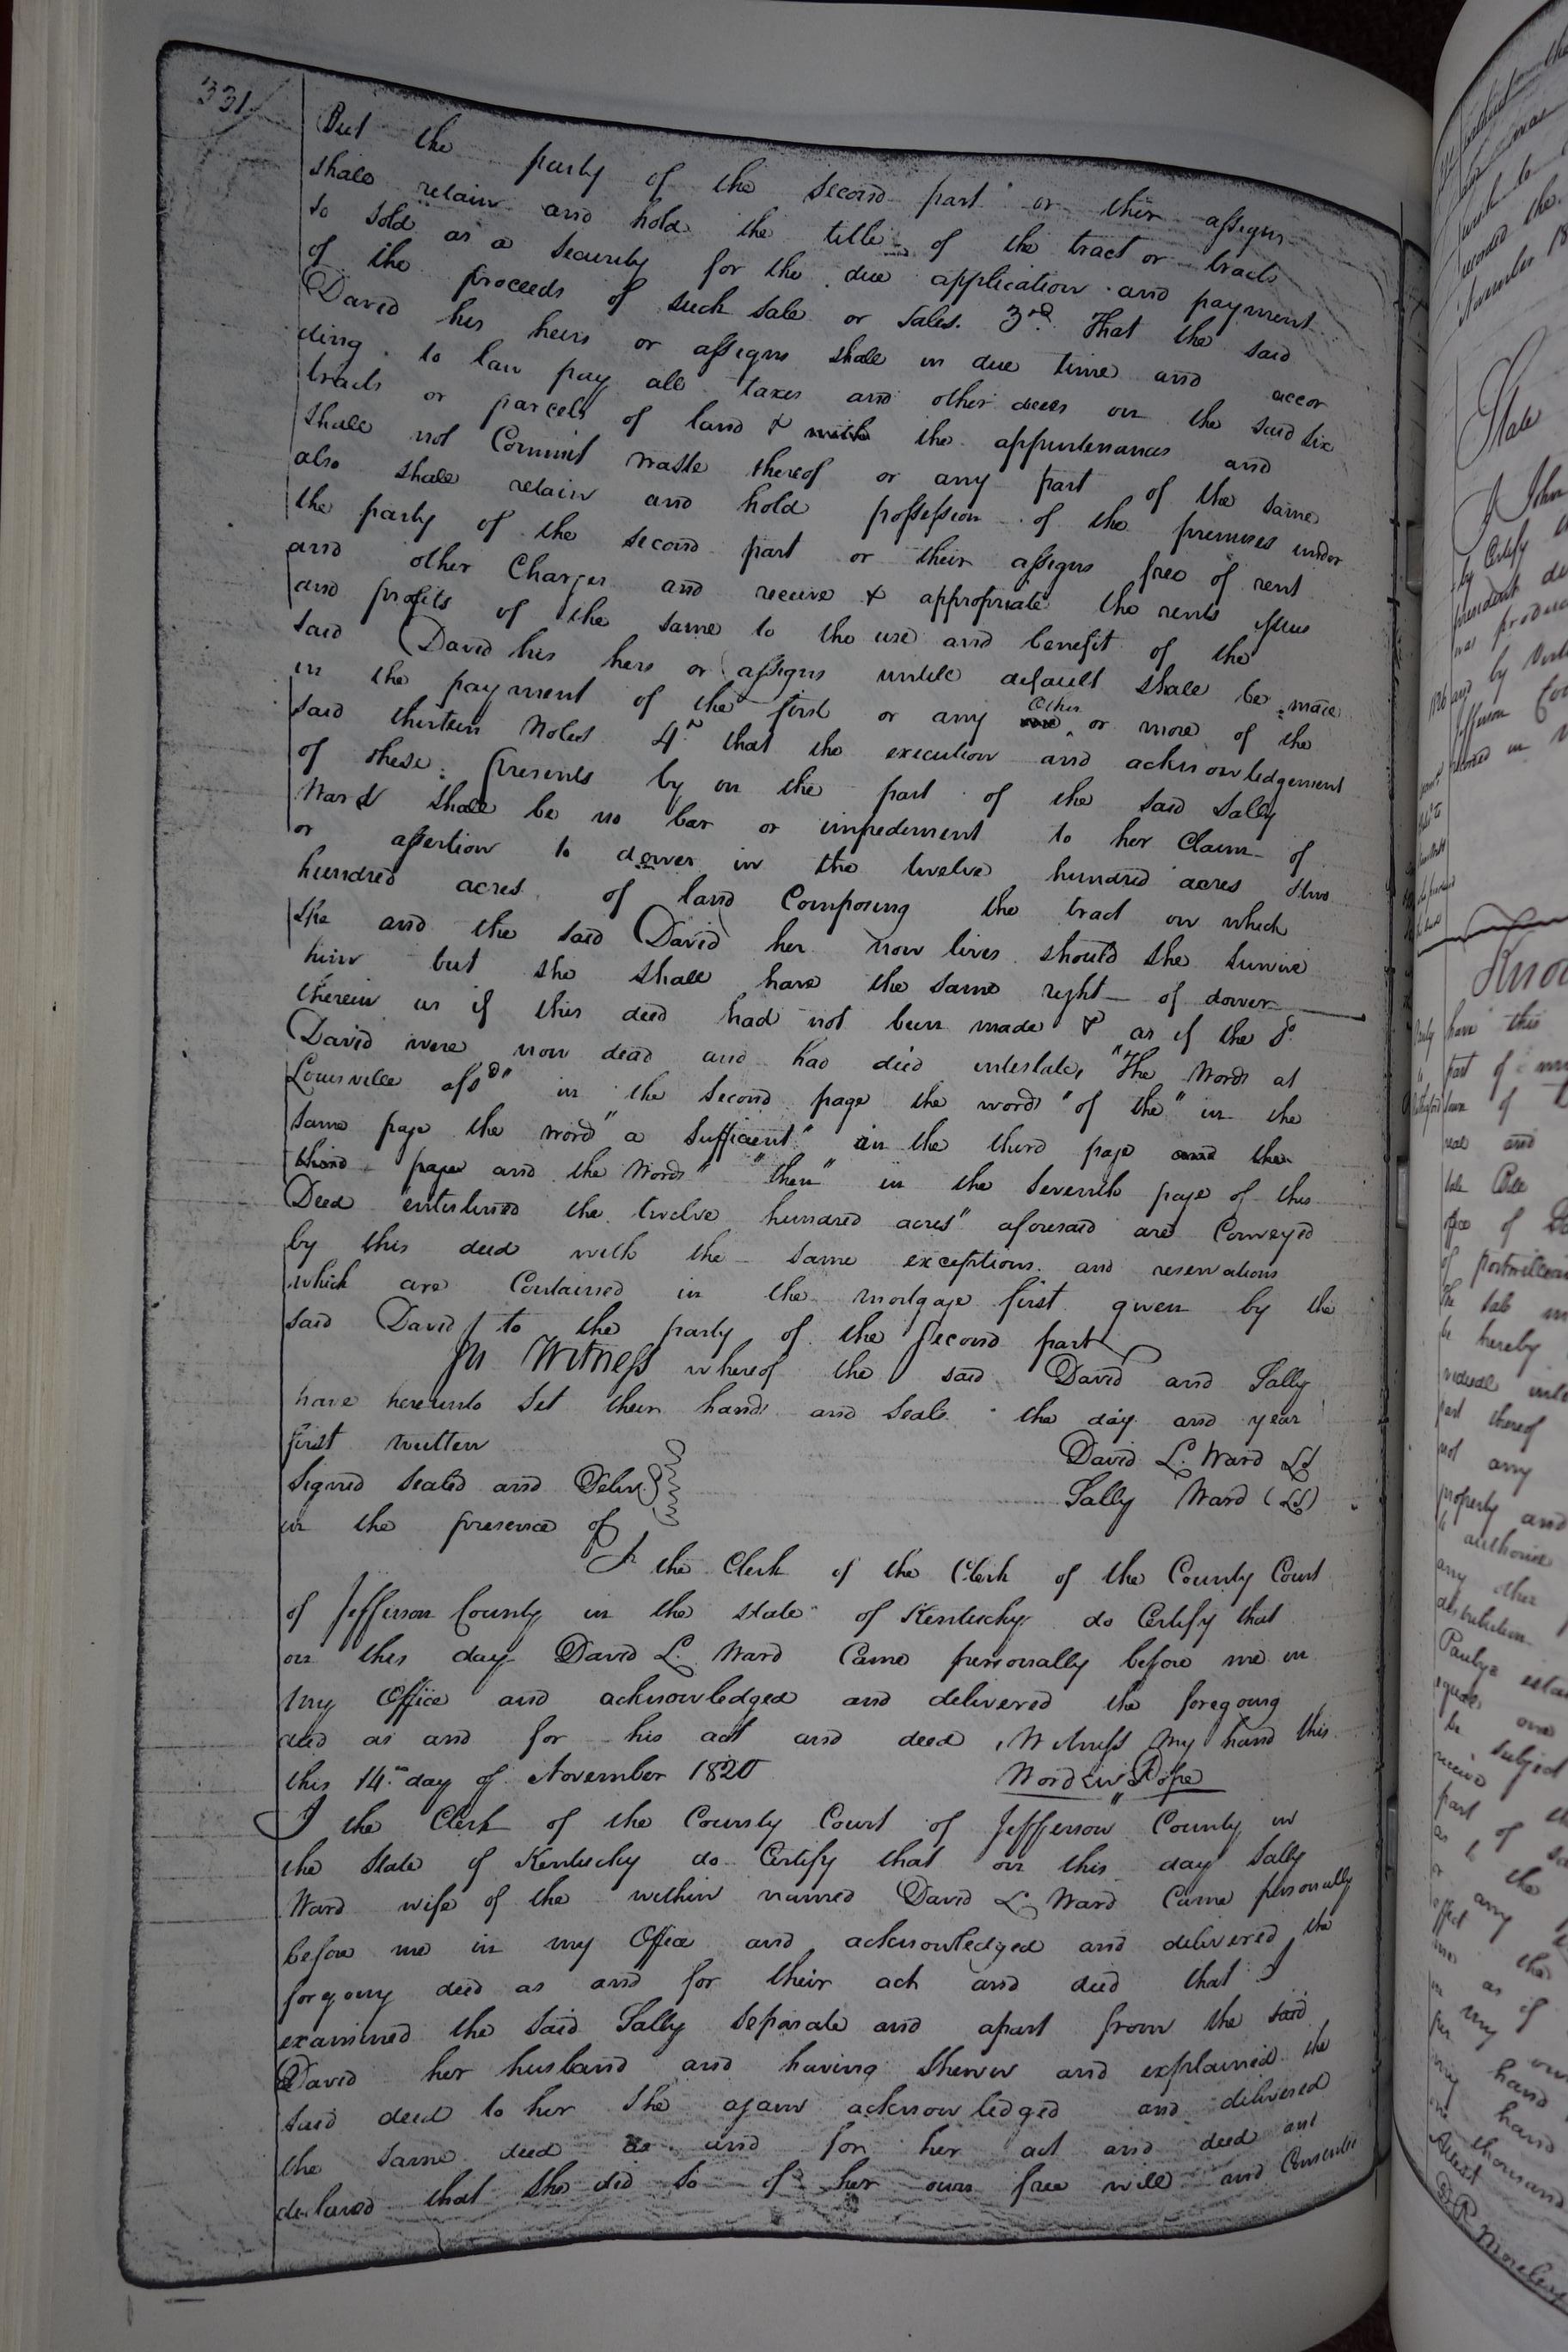 331
But the party of the second part or their assigns
shall retain and hold the title of the tract or tracts
so sold as a security for the due application and payment
of the proceeds of such sale or sales. 3rd. That the said
David his heirs or assigns shall in due time and accor
ding to law pay all taxes and other dues on the said six
tracts or parcels of land & with the appurtenances and
shall not Commit waste thereof or any part of the same
also shall retain and hold possession of the premises under
the party of the second part or their assigns free of rent
and other Charges and receive & appropriate the rents
and profits of the same to the use and benefit of the
said David his heirs or assigns untill default shall be made
in the payment of the first or any Other or more of the
said thirteen Notes 4th that the execution and acknowledgement
of these presents by on the part of the said Sally
Ward shall be no bar or impediment to her Claim of
or assertion to dower in the twelve hundred acres
hundred acres of land Composing the tract on which
She and the said David her now lives should she survive
him but she shall have the same right of dower
therein as if this deed had not been made & as if the Sd.
David were now dead and had died intestate, "The Words at
Louisville afsd" in the second page the words "of the" in the
same page the word "a sufficient" in the third page and the
third page and the Words "then" in the Seventh page of this
Deed interlined the twelve hundred acres" aforesaid are Conveyed
by this deed with the same exceptions and reservations
which are Contained in the mortgage first given by the
said David to the party of the second part
In Witness whereof the said David and Sally
have hereunto Set their hands and Seals the day and year
first written
David L. Ward LS
Signed Sealed and Deliv.
Sally Ward (LS)
in the presence of
I the Clerk of the Clerk of the County Court
of Jefferson County in the state of Kentucky do Certify that
on this day David L. Ward Came personally before me in
my Office and acknowledged and delivered the foregoing
deed as and for his act and deed, Witness my hand this
this 14th day of November 1820 Worden Pope
I the Clerk of the County Court of Jefferson County in
the State of Kentucky do Certify that on this day Sally
Ward wife of the within named David L Ward Came personally
before me in my Office and acknowledged and delivered the
forgoing deed as and for their act and deed that I
examined the said Sally separate and apart from the said
David her husband and having shewn and explained the
said deed to her She again acknowledged and delivered
the same deed as and for her act and deed and
declared that she did so of her own free will and Consent
State
I John
Know